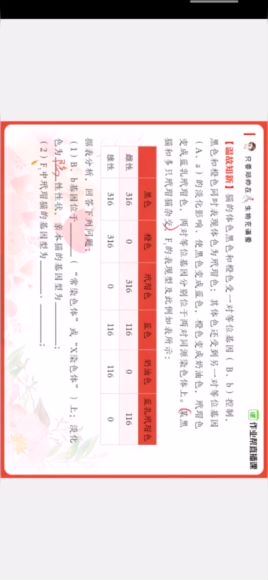 作业帮直播课
【温故知新】猫的体色黑色和橙色受一对等位基因（B、b）控制，
黑色和橙色同时表现体色为玳瑁色；其体色还受到另一对等位基因
（A、a）的淡化影响，使黑色变成蓝色，橙色变成奶油色，玳瑁色
变成蓝乳玳瑁色，两对等位基因分别位于两对同源染色体上。某黑
猫和多只玳瑁猫杂交，F的表现型及此例如表所示：
黑色 橙色 玳瑁色 蓝色 奶油色 蓝乳玳瑁色
雌性 316 0 316 116 0 116
雄性 316 316 0 116 116 0
据表分析，回答下列问题：
（1）B、b基因位于____（“常染色体”或“X染色体”）上；淡化
色为____性性状，亲本猫的基因型为____、
（2）F中玳瑁猫的基因型为____、____；